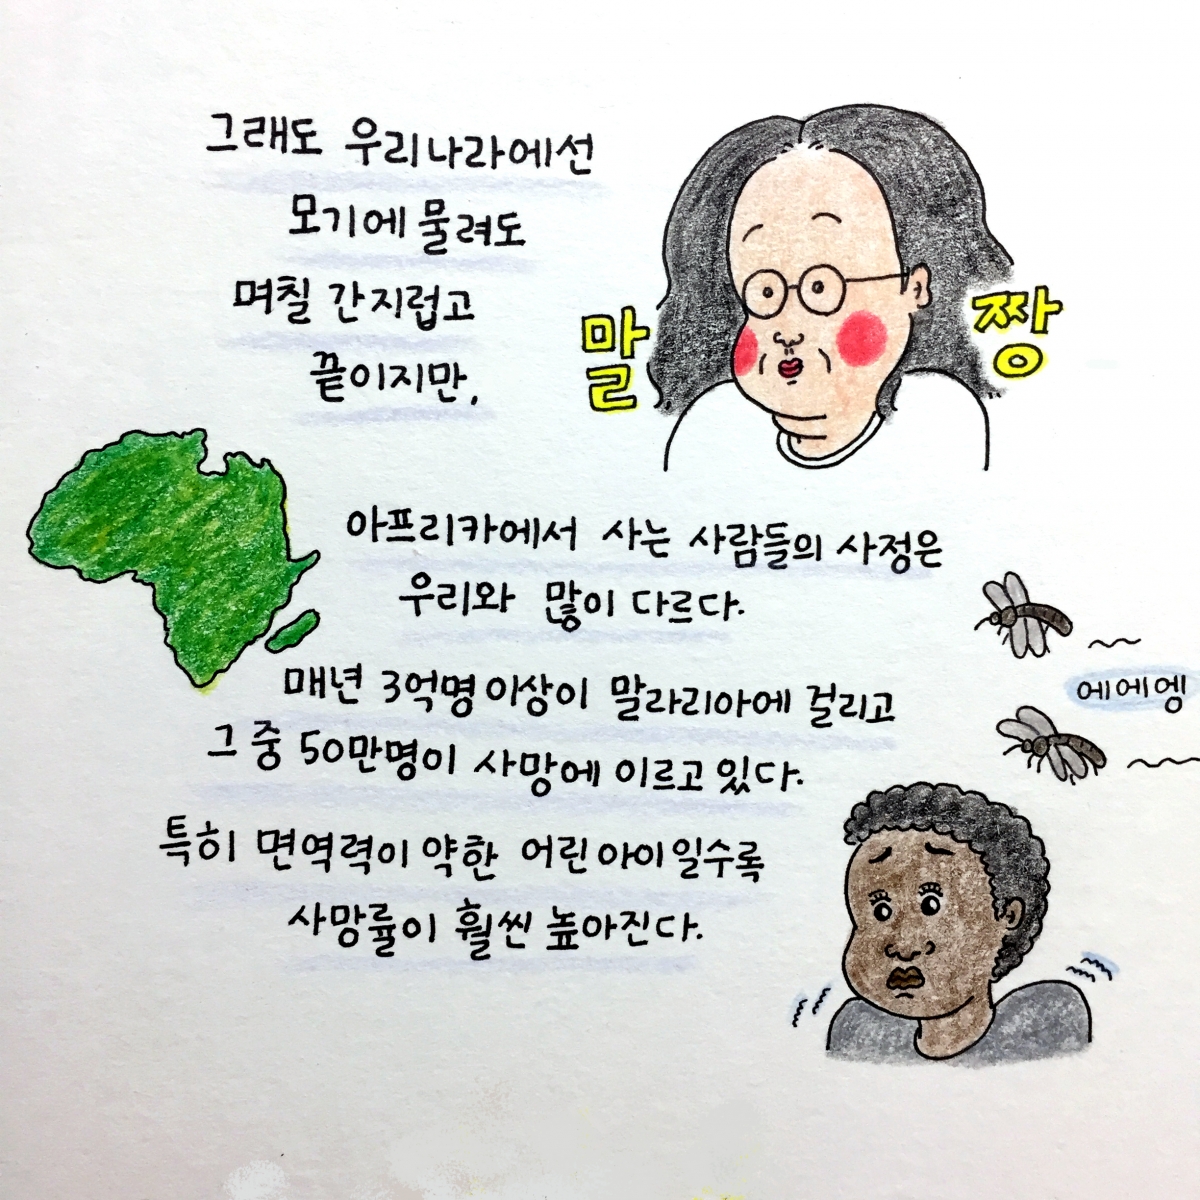 그래도 우리나라에선
모기에 물려도
며칠 간지럽고
끝이지만,
말짱
아프리카에서 사는 사람들의 사정은
우리와 많이 다르다.
에에엥
매년 3억명 이상이 말라리아에 걸리고
그 중 50만명이 사망에 이르고 있다.
특히 면역력이 약한 어린아이일수록
사망률이 훨씬 높아진다.